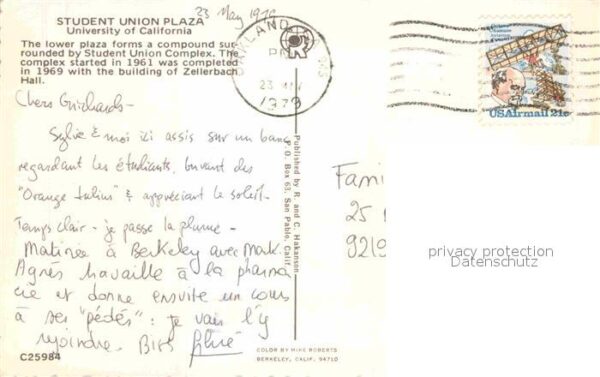 STUDENT UNION PLAZA
University of California
The lower plaza forms a compound sur-
rounded by Student Union Complex. The
complex started in 1961 was completed
in 1969 with the building of Zellerbach
Hall.
23 May 1979
OAKLAND
PM
23 MAY
1979
USAirmail 21c
Chers Guichards-
Sylvie & moi ici assis sur un banc
regardant les étudiants, buvant des
"Orange Julius" & appréciant le soleil-
Temps clair - je passe la plume -
Matinée à Berkeley avec Mark.
Agnès travaille à la pharma
cie et donne ensuite un cours
à ses "pédés": je vais l'y
rejoindre. Bises
Published by R. and C. Hakanson
P. O. Box 63, San Pablo, Calif.
Fami
25
9219
privacy protection
Datenschutz
C25984
COLOR BY MIKE ROBERTS
BERKELEY, CALIF. 94710